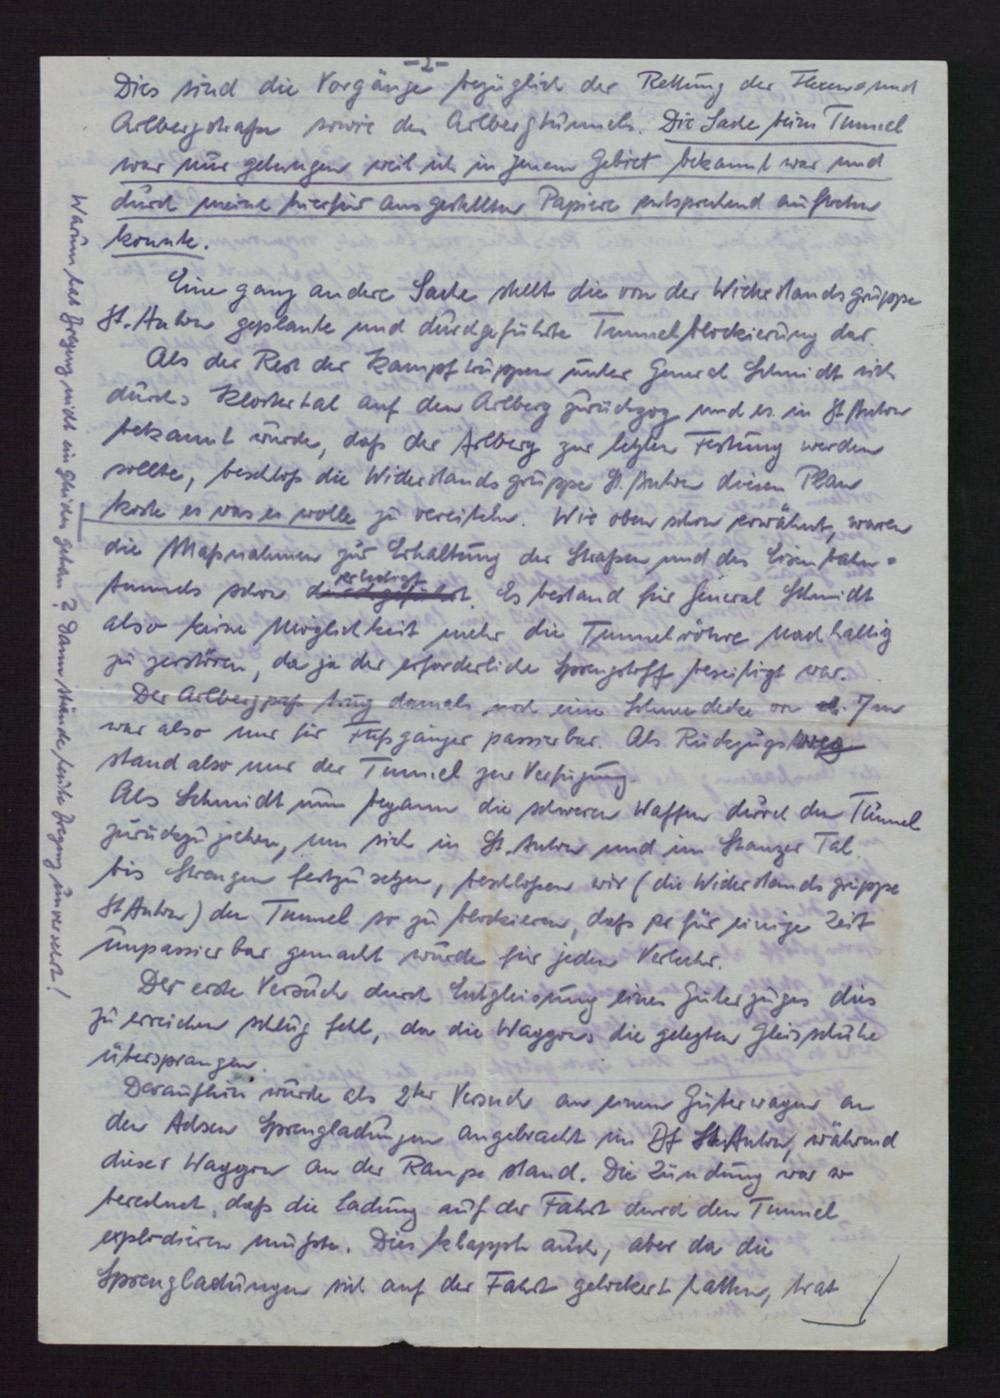 -2-
Dies sind die Vorgänge bezüglich der Rettung der Flexen= und
Arlbergstraße sowie des Arlbergtunnels. Die Sache beim Tunnel
war nur gelungen weil ich in jenem Gebiet bekannt war und
durch meine hierfür ausgestellten Papiere entsprechend auftreten
konnte.
Eine ganz andere Sache stellt die von der Widerstandsgruppe
St. Anton geplante und durchgeführte Tunnelblockierung dar.
Als der Rest der Kampftruppen unter General Schmidt sich
durchs Klostertal auf den Arlberg zurückzog und es in St. Anton
bekannt wurde, daß der Arlberg zur letzten Festung werden
sollte, beschloß die Widerstandsgruppe St. Anton diesen Plan
koste es was es wolle zu vereiteln. Wie oben schon erwähnt, waren
die Maßnahmen zur Erhaltung der Straßen und des Eisenbahn=
tunnels schon durchgeführt erledigt. Es bestand für General Schmidt
also keine Möglichkeit mehr die Tunnelröhre nachhaltig
zu zerstören, da ja der erforderliche Sprengstoff beseitigt war.
Der Arlbergpaß trug damals noch eine Schneedecke von 7 m
war also nur für Fußgänger passierbar. Als Rückzugsweg
stand also nur der Tunnel zur Verfügung
Als Schmidt nun begann die schweren Waffen durch den Tunnel
zurückzuziehen, um sich in St. Anton und im Stanzer Tal
bis Strengen festzusetzen, beschloßen wir (die Widerstandsgruppe
St Anton) den Tunnel so zu blockieren, daß er für einige Zeit
unpassierbar gemacht würde für jeden Verkehr.
Der erste Versuch durch Entgleisung eines Güterzuges dies
zu erreichen schlug fehl, da die Waggons die gelegten Gleisschuhe
übersprangen.
Daraufhin wurde als 2ter Versuch an einem Güterwagen an
den Achsen Sprengladungen angebracht im Bf St. Anton, während
dieser Waggon an der Rampe stand. Die Zündung war so
berechnet, daß die Ladung auf der Fahrt durch den Tunnel
explodieren mußte. Dies klappte auch, aber da die
Sprengladungen sich auf der Fahrt gelockert hatten, trat
Warum hat Bregenz nicht ein gleiches getan? Dann stünde heute Bregenz unversehrt!